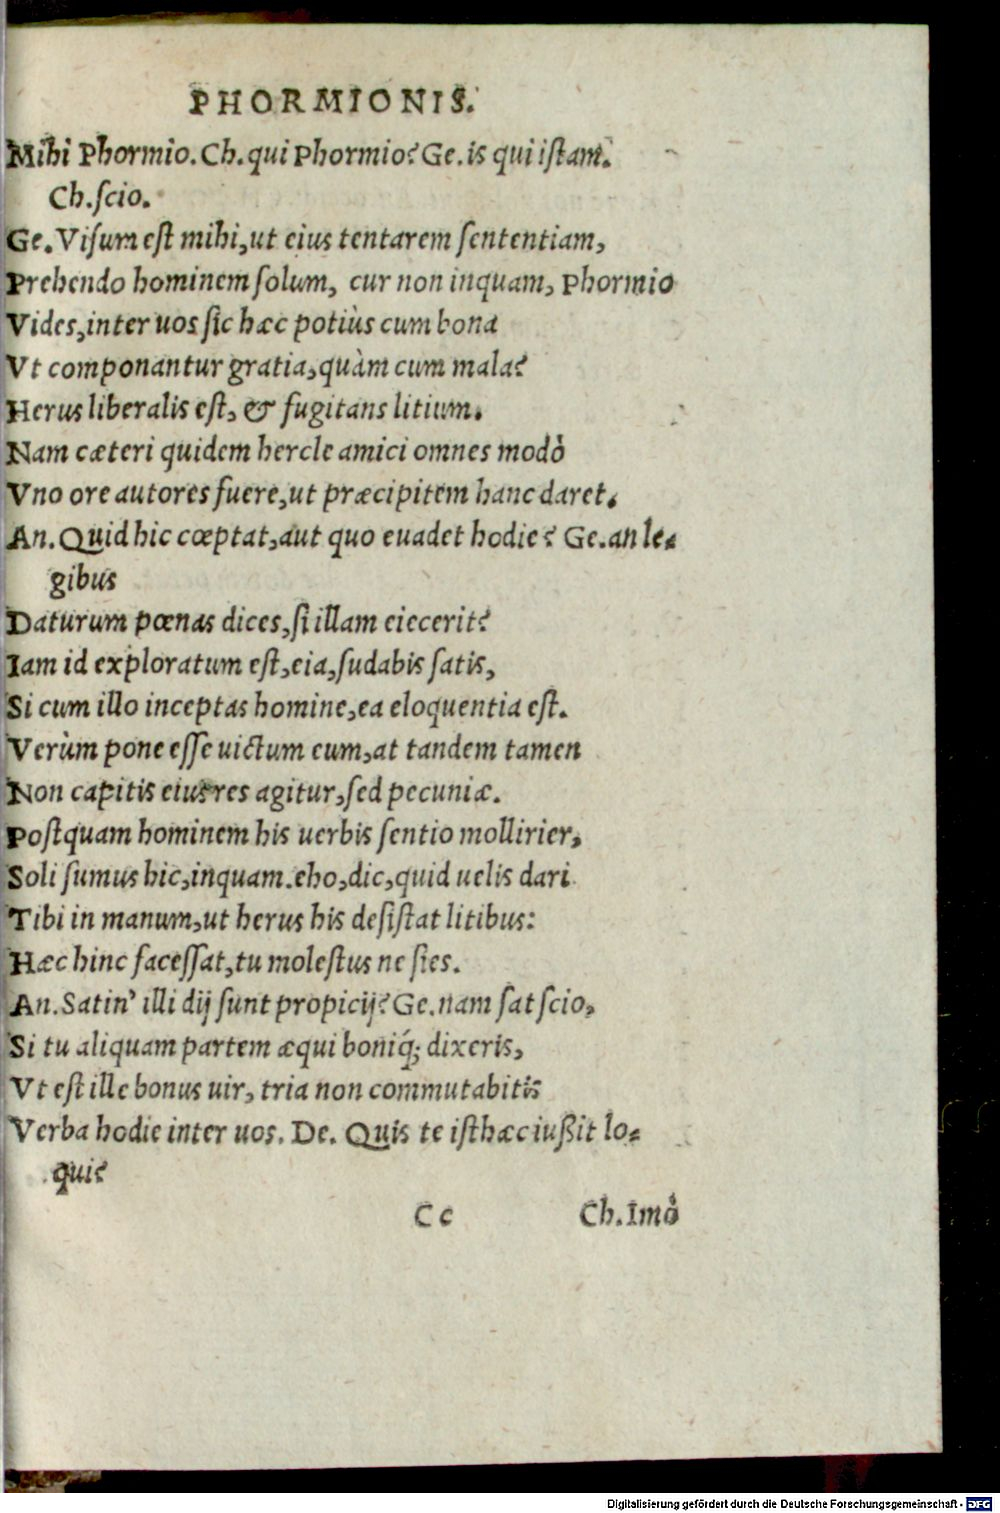 PHORMIONIS.
Mihi Phormio. Ch. qui Phormio? Ge. is qui iſtam.
Ch. ſcio.
Ge. Viſum eſt mihi, ut eius tentarem ſententiam,
Prehendo hominem ſolum, cur non inquam, Phormio
Vides, inter uos ſic hæc potiùs cum bona
Vt componantur gratia, quàm cum mala?
Herus liberalis eſt, & fugitans litium.
Nam cæteri quidem hercle amici omnes modò
Vno ore autores fuere, ut præcipitem hanc daret.
An. Quid hic cœptat, aut quo euadet hodie? Ge. an le-
gibus
Daturum pœnas dices, ſi illam eiecerit?
Iam id exploratum eſt, eia, ſudabis ſatis,
Si cum illo inceptas homine, ea eloquentia eſt.
Verùm pone eſſe uictum eum, at tandem tamen
Non capitis eius res agitur, ſed pecuniæ.
Poſtquam hominem his uerbis ſentio mollirier,
Soli ſumus hic, inquam. eho, dic, quid uelis dari
Tibi in manum, ut herus his deſiſtat litibus:
Hæc hinc faceſſat, tu moleſtus ne ſies.
An. Satin' illi dij ſunt propicij? Ge. nam ſat ſcio,
Si tu aliquam partem æqui boniq́; dixeris,
Vt eſt ille bonus uir, tria non commutabitis
Verba hodie inter uos. De. Quis te iſthæc iußit lo-
qui?
Cc Ch. Imò
Digitalisierung gefördert durch die Deutsche Forschungsgemeinschaft - DFG